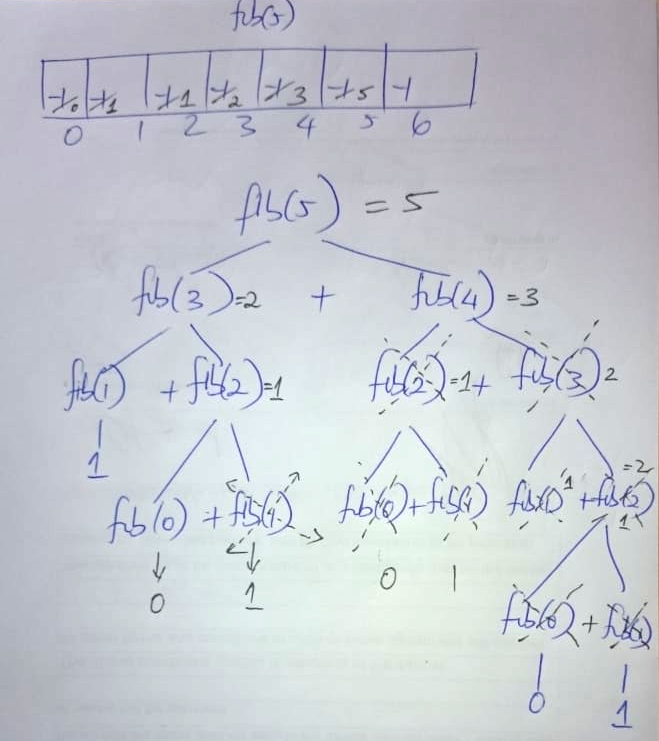 fib(5)
-1 0 -1 1 -1 1 -1 2 -1 3 -1 5 -1
0 1 2 3 4 5 6
fib(5) = 5
fib(3)=2 + fib(4)=3
fib(1) + fib(2)=1 fib(2)=1+ fib(3) 2
1
=2
fib(0) + fib(1) fib(0)+fib(1) fib(1) 1 +fib(2)
1
0 1 0 1
fib(0) + fib(1)
0 1